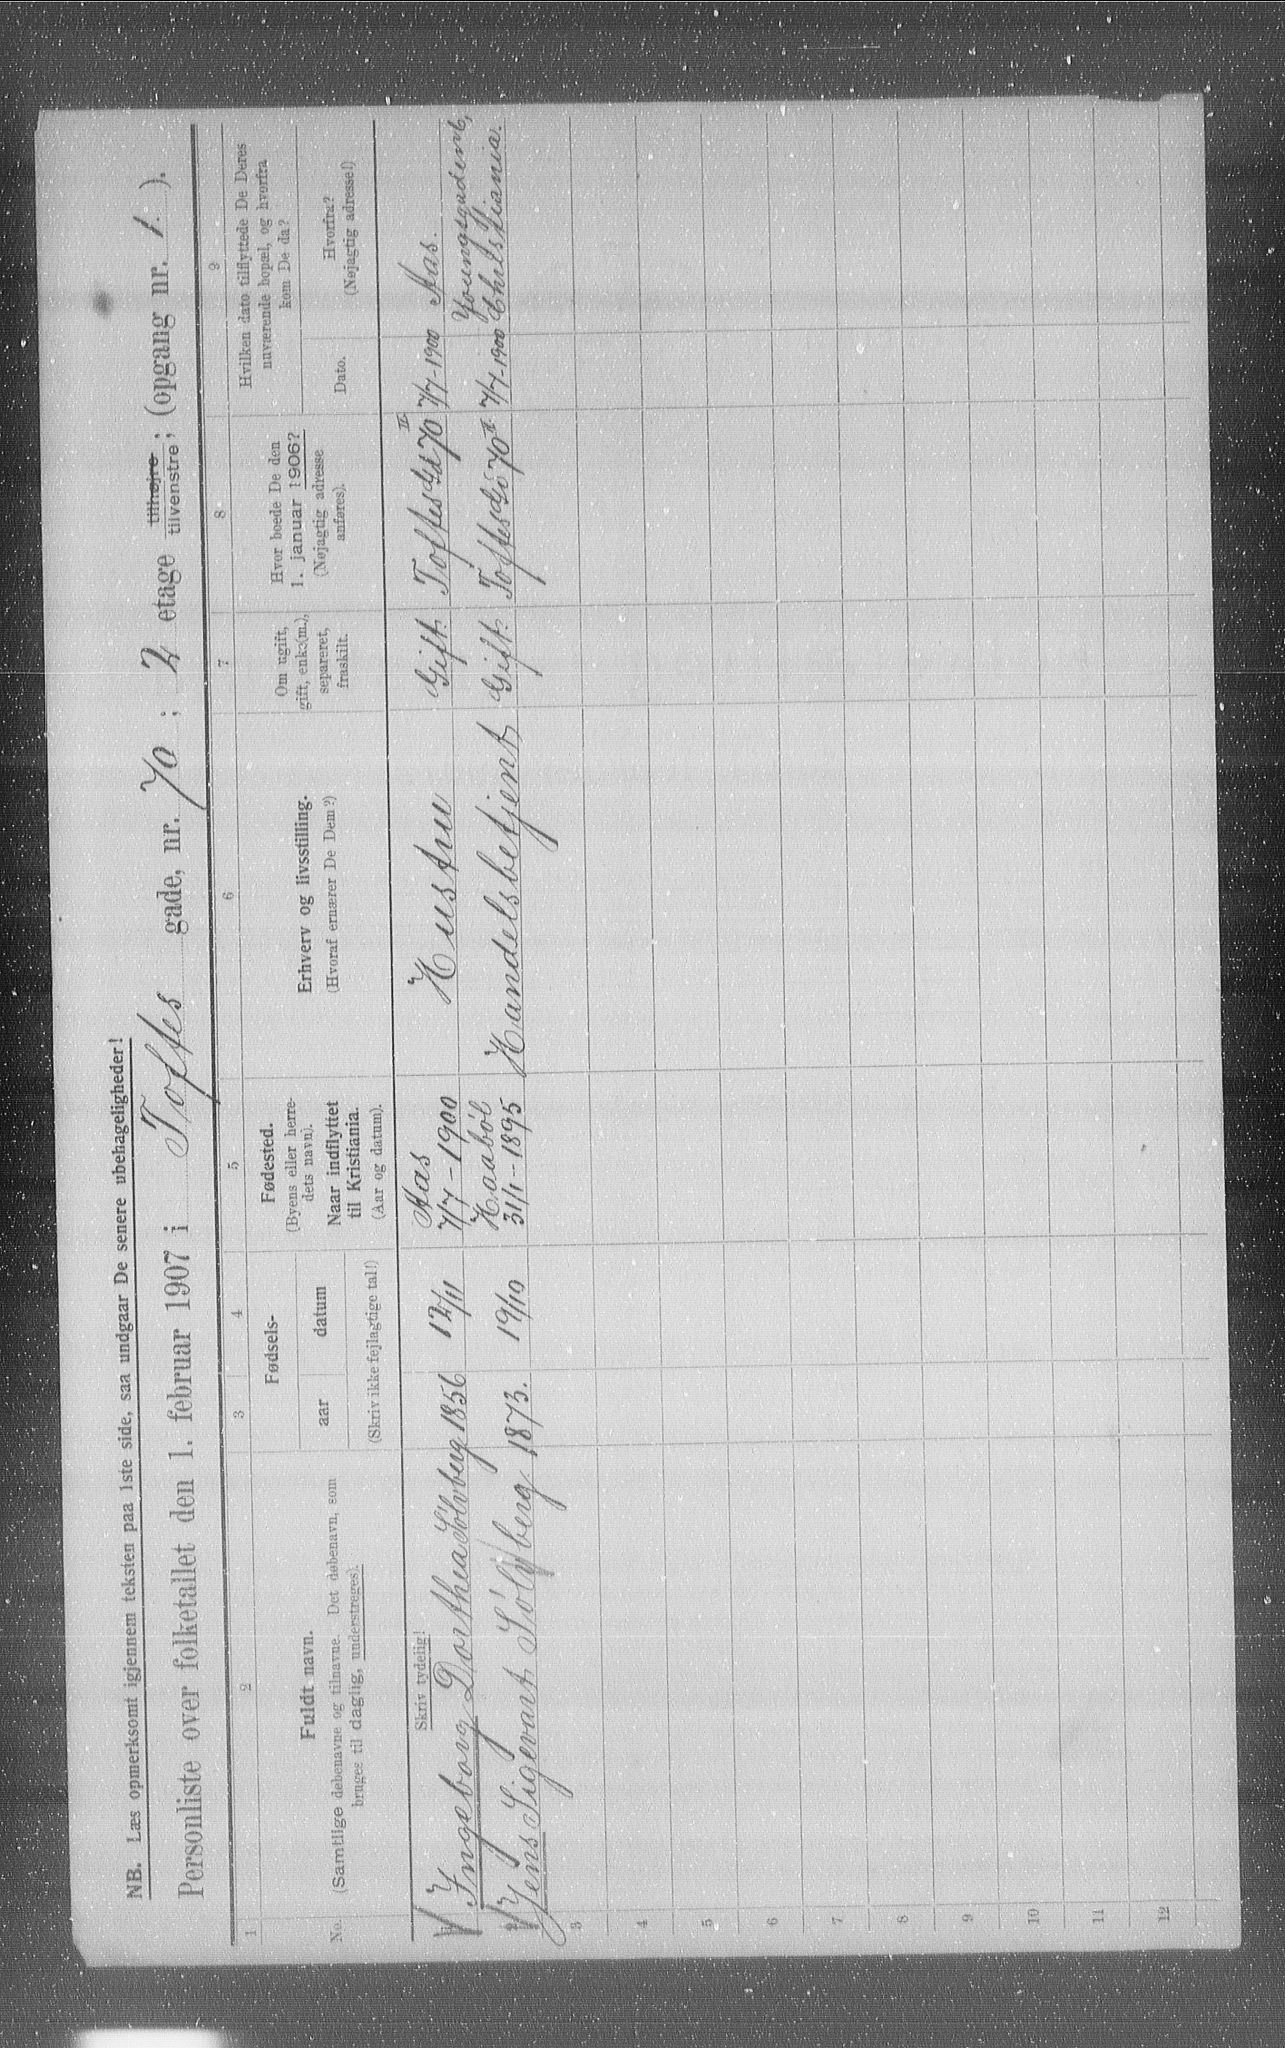 NB. Læs opmerksomt igjennem teksten paa 1ste side, saa undgaar De senere ubehageligheder!
Personliste over folketallet den 1. februar 1907 i Toftes gade, nr. 70 ; 2 etage tilhøjre tilvenstre ; (opgang nr. 1. ).
1 2 3 4 5 6 7 8 9
No.
Fuldt navn.
(Samtlige døbenavne og tilnavne. Det døbenavn, som
bruges til daglig, understreges).
Fødsels-
aar datum
(Skriv ikke fejlagtige tal!)
Fødested.
(Byens eller herre-
dets navn).
Naar indflyttet
til Kristiania.
(Aar og datum).
Erhverv og livsstilling.
(Hvoraf ernærer De Dem?)
Om ugift,
gift, enke(m.),
separeret,
fraskilt.
Hvor boede De den
1. januar 1906?
(Nøjagtig adresse
anføres).
Hvilken dato tilflyttede De Deres
nuværende bopæl, og hvorfra
kom De da?
Dato.
Hvorfra?
(Nøjagtig adresse!)
Skriv tydelig!
1 Ingeborg Dorthea Sölvberg 1856 12/11 Aas 7/7-1900 Hustru Gift. Toftes Gd 70 II 7/7-1900 Aas.
2 Jens Sigevart Sölvberg 1873. 19/10 Haaböl 31/1-1895 Handelsbetjent Gift. Toftes Gd 70 II 7/7-1900 Youngsgaden, Christiania.
3
4
5
6
7
8
9
10
11
12